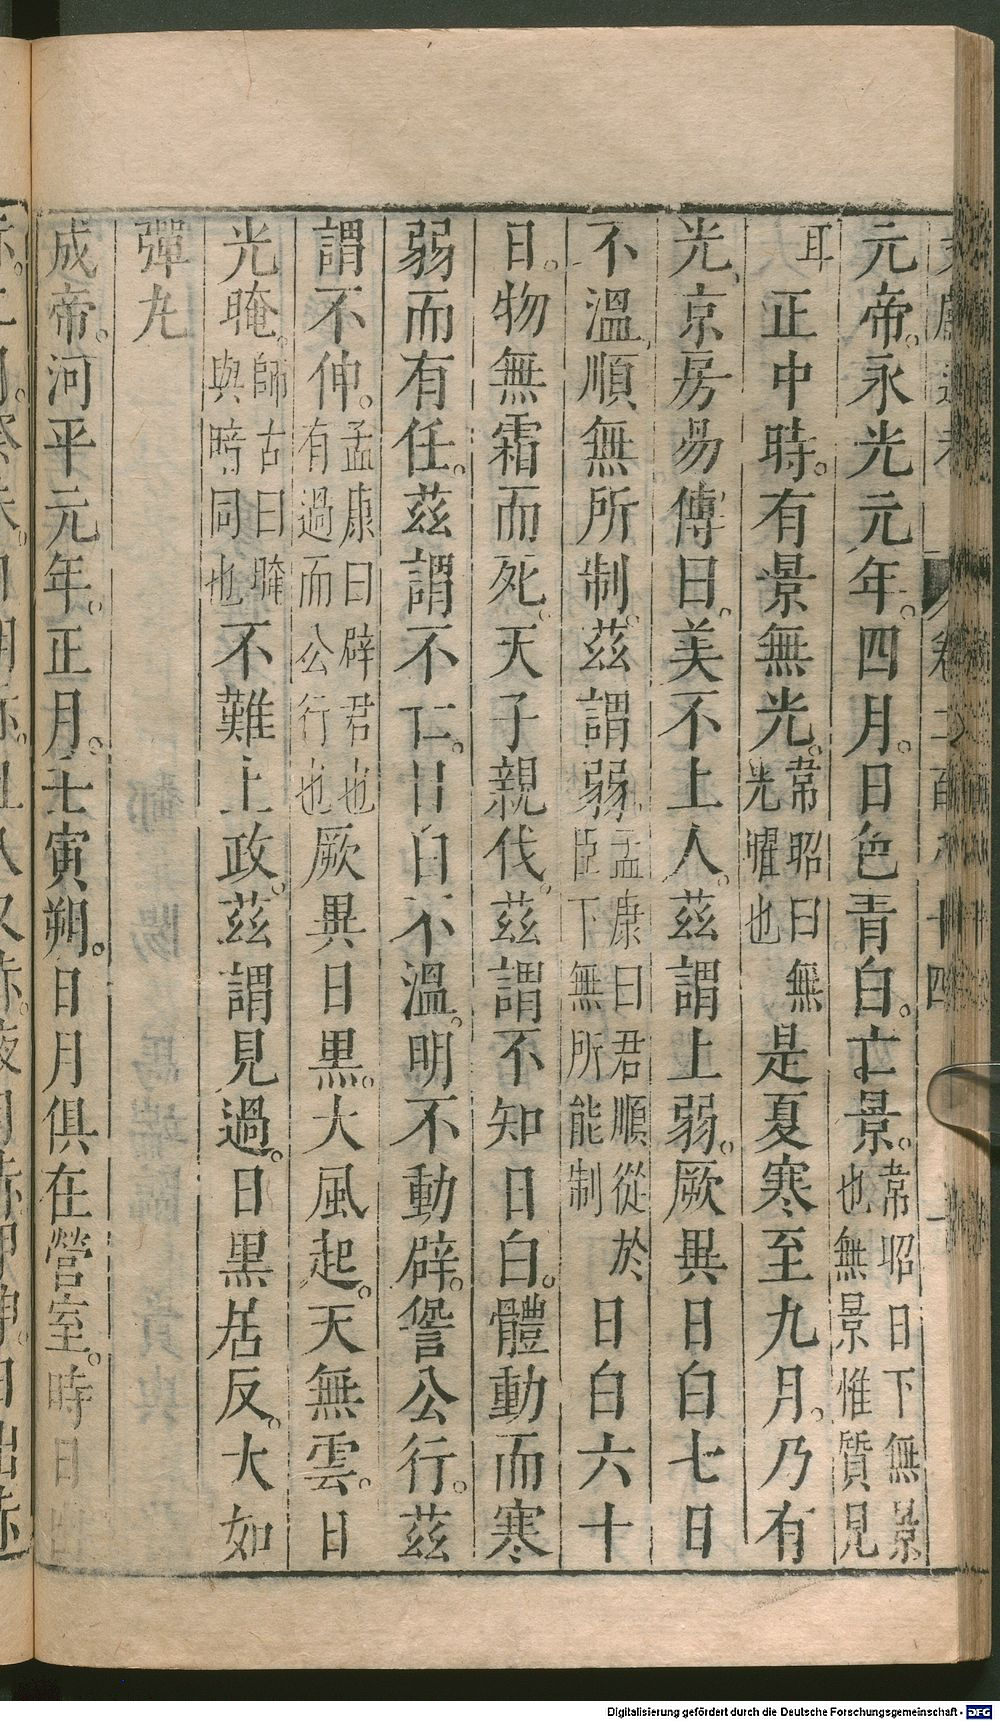 元帝。永光元年。四月。日色青白。亡景。韋昭曰下無景也無景惟質見
耳正中時。有景無光。韋昭曰無光曜也是夏寒至九月。乃有
光、京房易傳曰。美不上人。茲謂上弱。厥異日白七日
不溫、順無所制。茲謂弱、孟康曰君順從於臣下無所能制日白六十
日。物無霜而死。天子親伐。茲謂不知日白。體動而寒
弱而有任。茲謂不仁。日白不溫。明不動辟。諐公行。茲
謂不伸。孟康曰辟君也有過而公行也厥異日黑。大風起。天無雲。日
光晻。師古曰晻與暗同也不難上政。茲謂見過。日黑居仄。大如
彈丸
成帝。河平元年。正月。壬寅朔。日月俱在營室。時日出
Digitalisierung gefördert durch die Deutsche Forschungsgemeinschaft - DFG